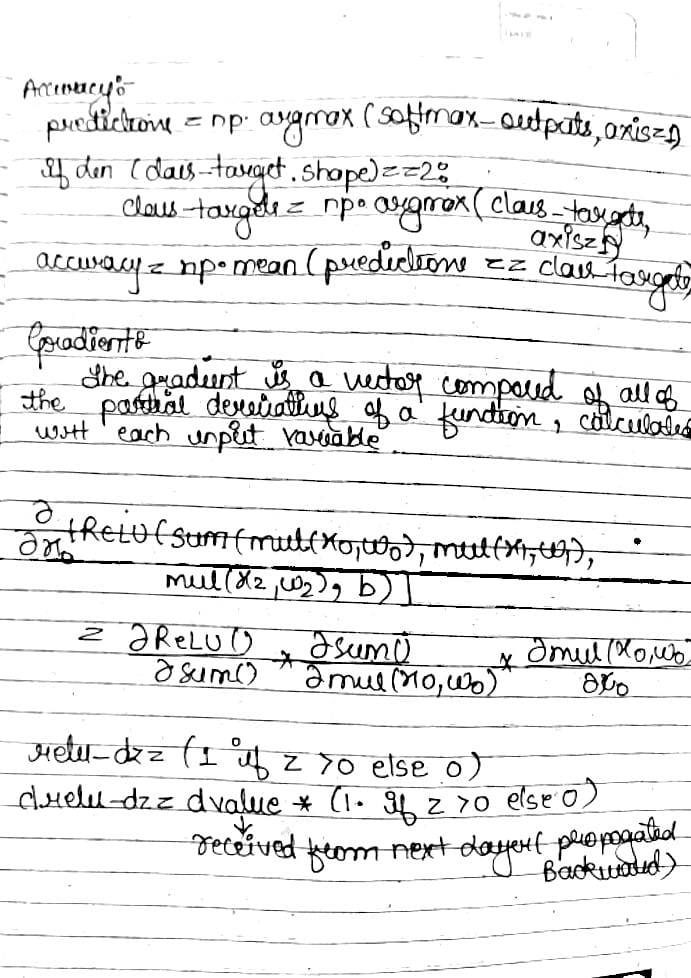 Accuracy:-
predictions = np. argmax (softmax-outputs, axis=1)
If len (class-target.shape)==2:
class-targets = np. argmax (class-targets,
axis=1)
accuracy = np.mean (predictions == class-targets)
Gradient:
The gradient is a vector composed of all of
the partial derivatives of a function, calculated
wrt each input variable.
∂/∂x₀ [ReLU(sum(mul(x₀,w₀), mul(x₁,w₁),
mul(x₂,w₂), b)]
= ∂ReLU()/∂sum() * ∂sum()/∂mul(x₀,w₀) * ∂mul(x₀,w₀)/∂x₀
relu-dz = (1 if z >0 else 0)
drelu-dz = dvalue * (1. If z >0 else 0)
↓
received from next layer( propogated
Backward)